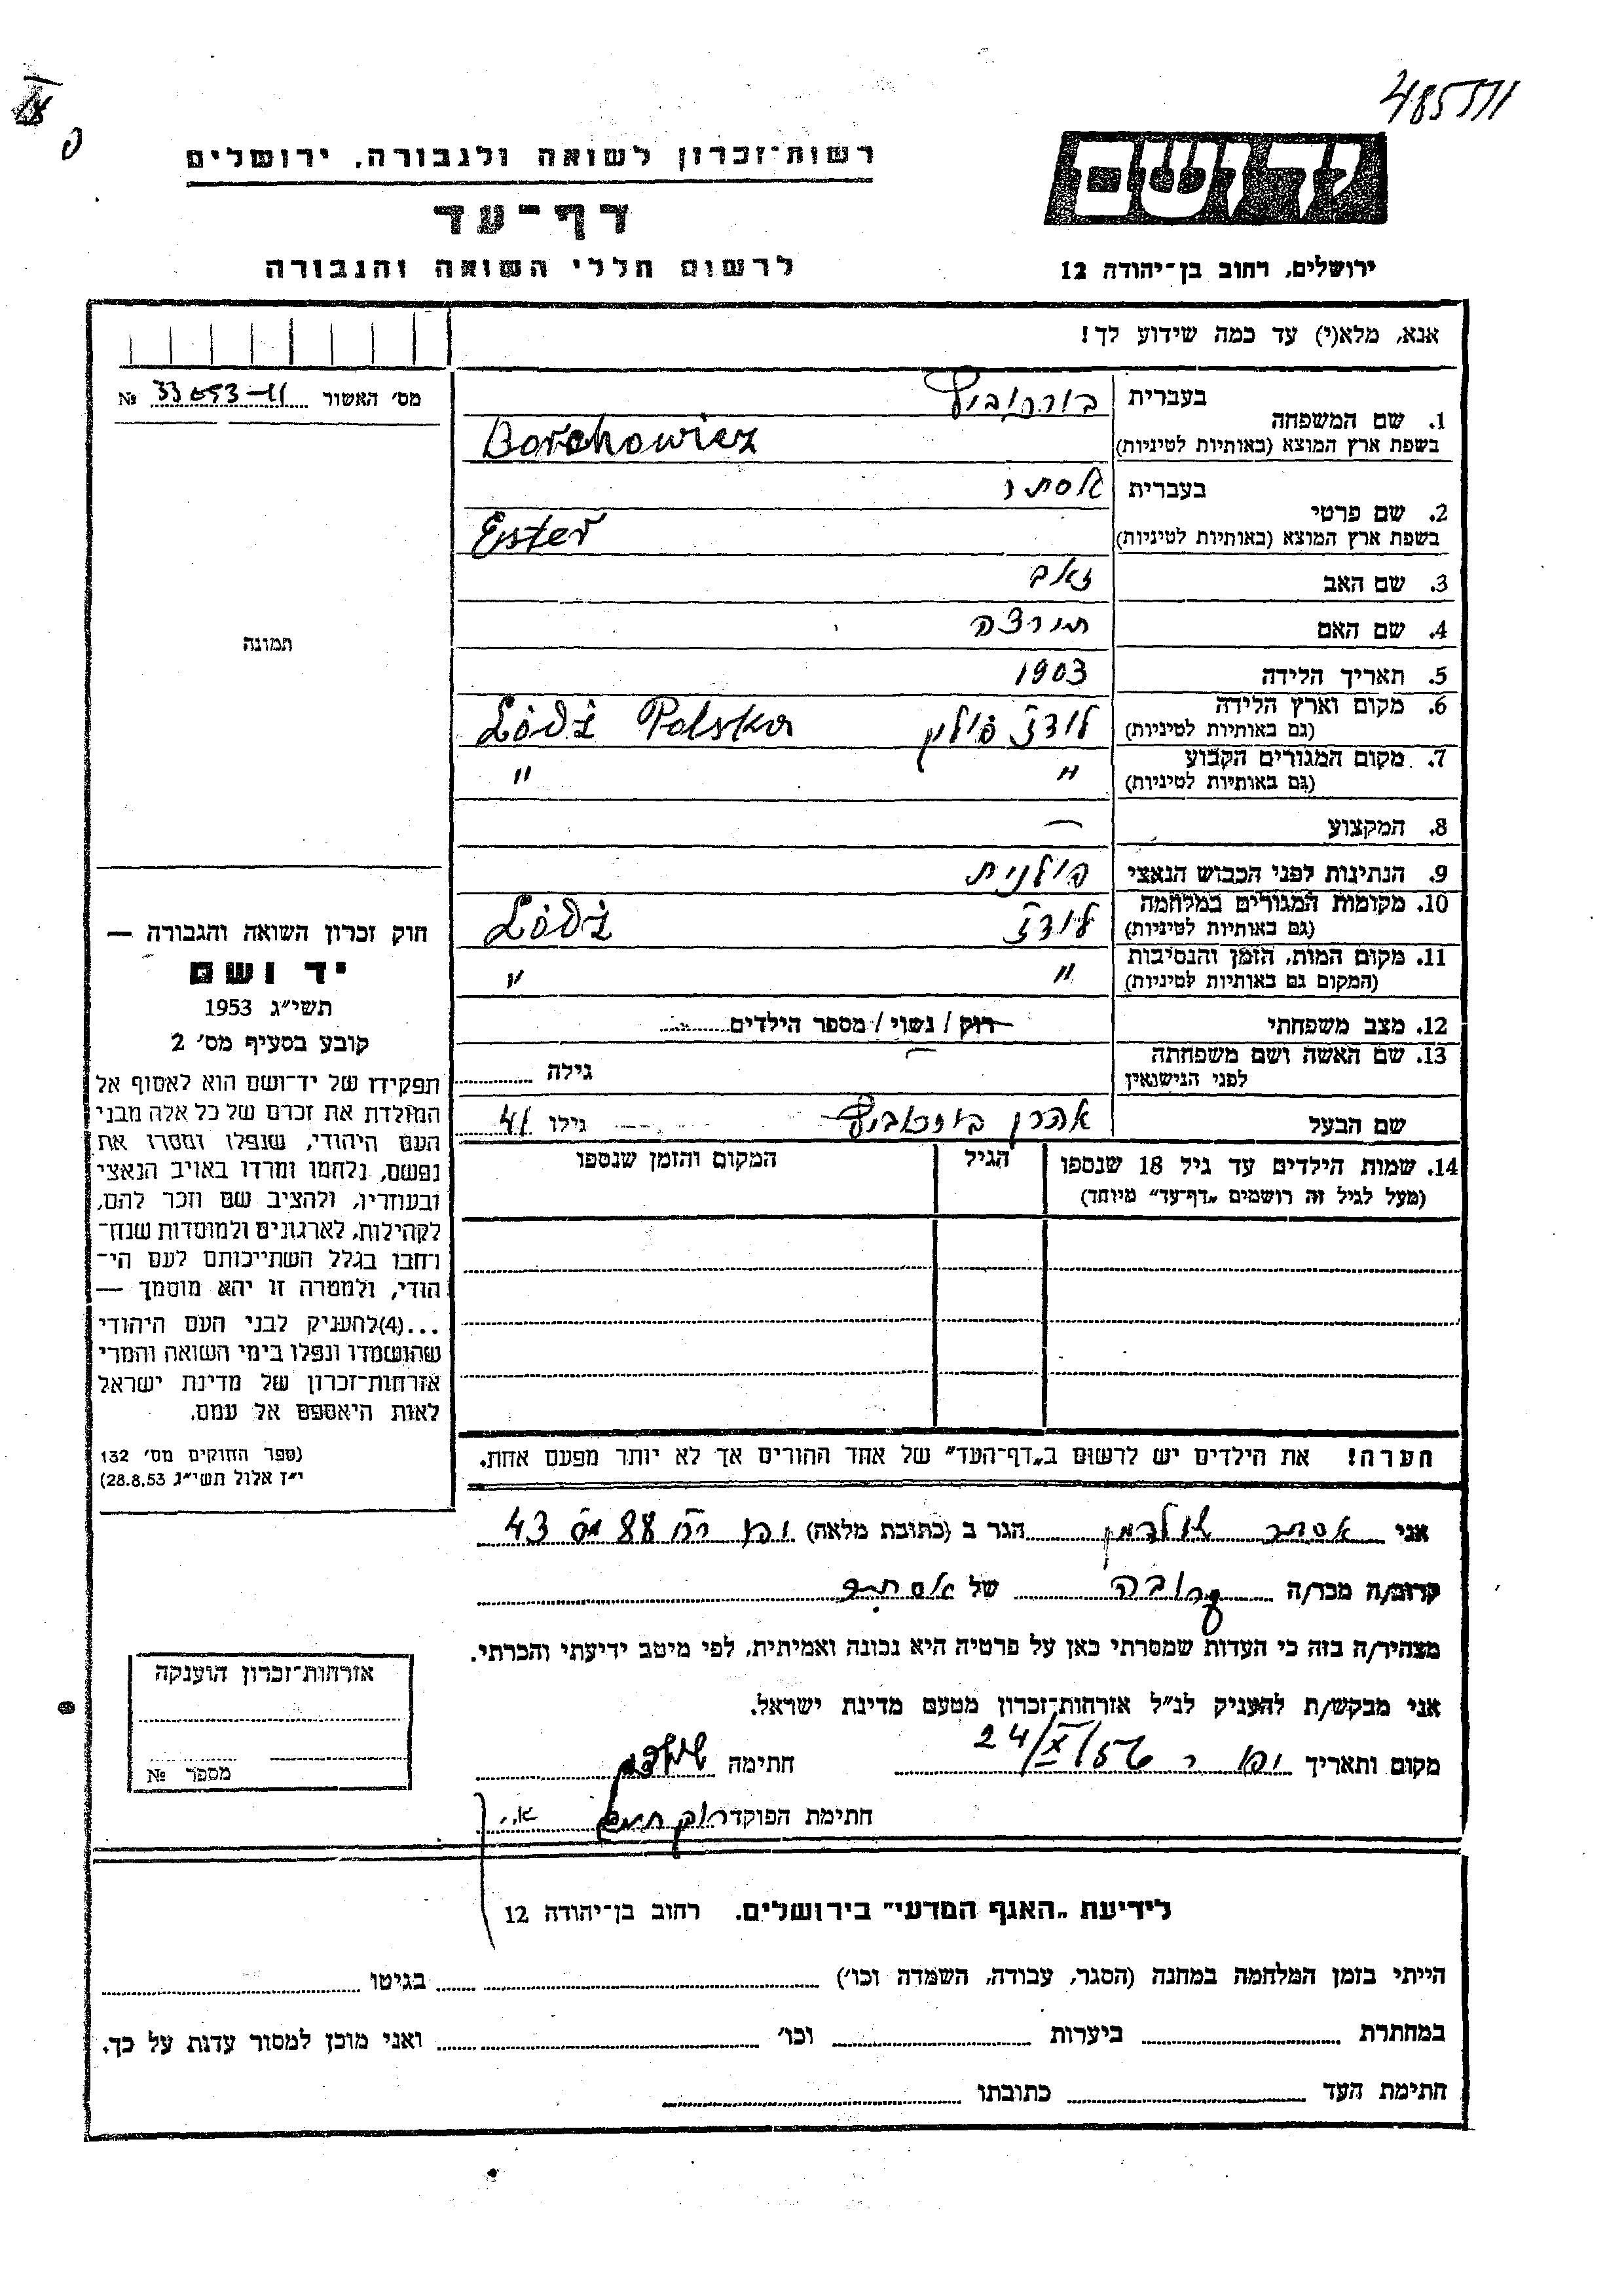 485571
יד ושם
רשות-זכרון לשואה ולגבורה, ירושלים
דף-עד
לרשום חללי השואה והגבורה
ירושלים, רחוב בן-יהודה 12
אנא, מלא(י) עד כמה שידוע לך!
מס' האשור 33053-11 №
תמונה
חוק זכרון השואה והגבורה —
יד ושם
תשי״ג 1953
קובע בסעיף מס' 2
תפקידו של יד-ושם הוא לאסוף אל
המולדת את זכרם של כל אלה מבני
העם היהודי, שנפלו ומסרו את
נפשם, נלחמו ומרדו באויב הנאצי
ובעוזריו, ולהציב שם וזכר להם,
לקהילות, לארגונים ולמוסדות שנח-
רחבו בגלל השתייכותם לעם הי-
הודי, ולמטרה זו יהא מוסמך —
...(4)להעניק לבני העם היהודי
שהושמדו ונפלו בימי השואה והמרי
אזרחות-זכרון של מדינת ישראל
לאות היאספם אל עמם.
(ספר החוקים מס' 132
י״ז אלול תשי״ג 28.8.53)
1. שם המשפחה בעברית בורחוביץ
בשפת ארץ המוצא (באותיות לטיניות) Borchowicz
2. שם פרטי בעברית אסתר
בשפת ארץ המוצא (באותיות לטיניות) Ester
3. שם האב זאב
4. שם האם תירצה
5. תאריך הלידה 1903
6. מקום וארץ הלידה (גם באותיות לטיניות) לודז פולין Lódż Polska
7. מקום המגורים הקבוע (גם באותיות לטיניות) " "
8. המקצוע —
9. הנתינות לפני הכבוש הנאצי פולנית
10. מקומות המגורים במלחמה (גם באותיות לטיניות) לודז Lódż
11. מקום המות, הזמן והנסיבות (המקום גם באותיות לטיניות) " "
12. מצב משפחתי רוק / נשוי / מספר הילדים
13. שם האשה ושם משפחתה לפני הנישואין — גילה
שם הבעל אהרן בורחוביץ גילו 41
14. שמות הילדים עד גיל 18 שנספו הגיל המקום והזמן שנספו
(מעל לגיל זה רושמים „דף-עד״ מיוחד)
הערה! את הילדים יש לרשום ב„דף-העד״ של אחד ההורים אך לא יותר מפעם אחת.
אני אסתר הגר ב (כתובת מלאה) 88 43
קרוב/ה מכר/ה קרובה של אסתר
מצהיר/ה בזה כי העדות שמסרתי כאן על פרטיה היא נכונה ואמיתית, לפי מיטב ידיעתי והכרתי.
אני מבקש/ת להעניק לנ״ל אזרחות-זכרון מטעם מדינת ישראל.
מקום ותאריך 24/X/56 חתימה
חתימת הפוקד
אזרחות-זכרון הוענקה
מספר №
לידיעת „האגף המדעי״ בירושלים. רחוב בן-יהודה 12
הייתי בזמן המלחמה במחנה (הסגר, עבודה, השמדה וכו') בגיטו
במחתרת ביערות וכו' ואני מוכן למסור עדות על כך.
חתימת העד כתובתו